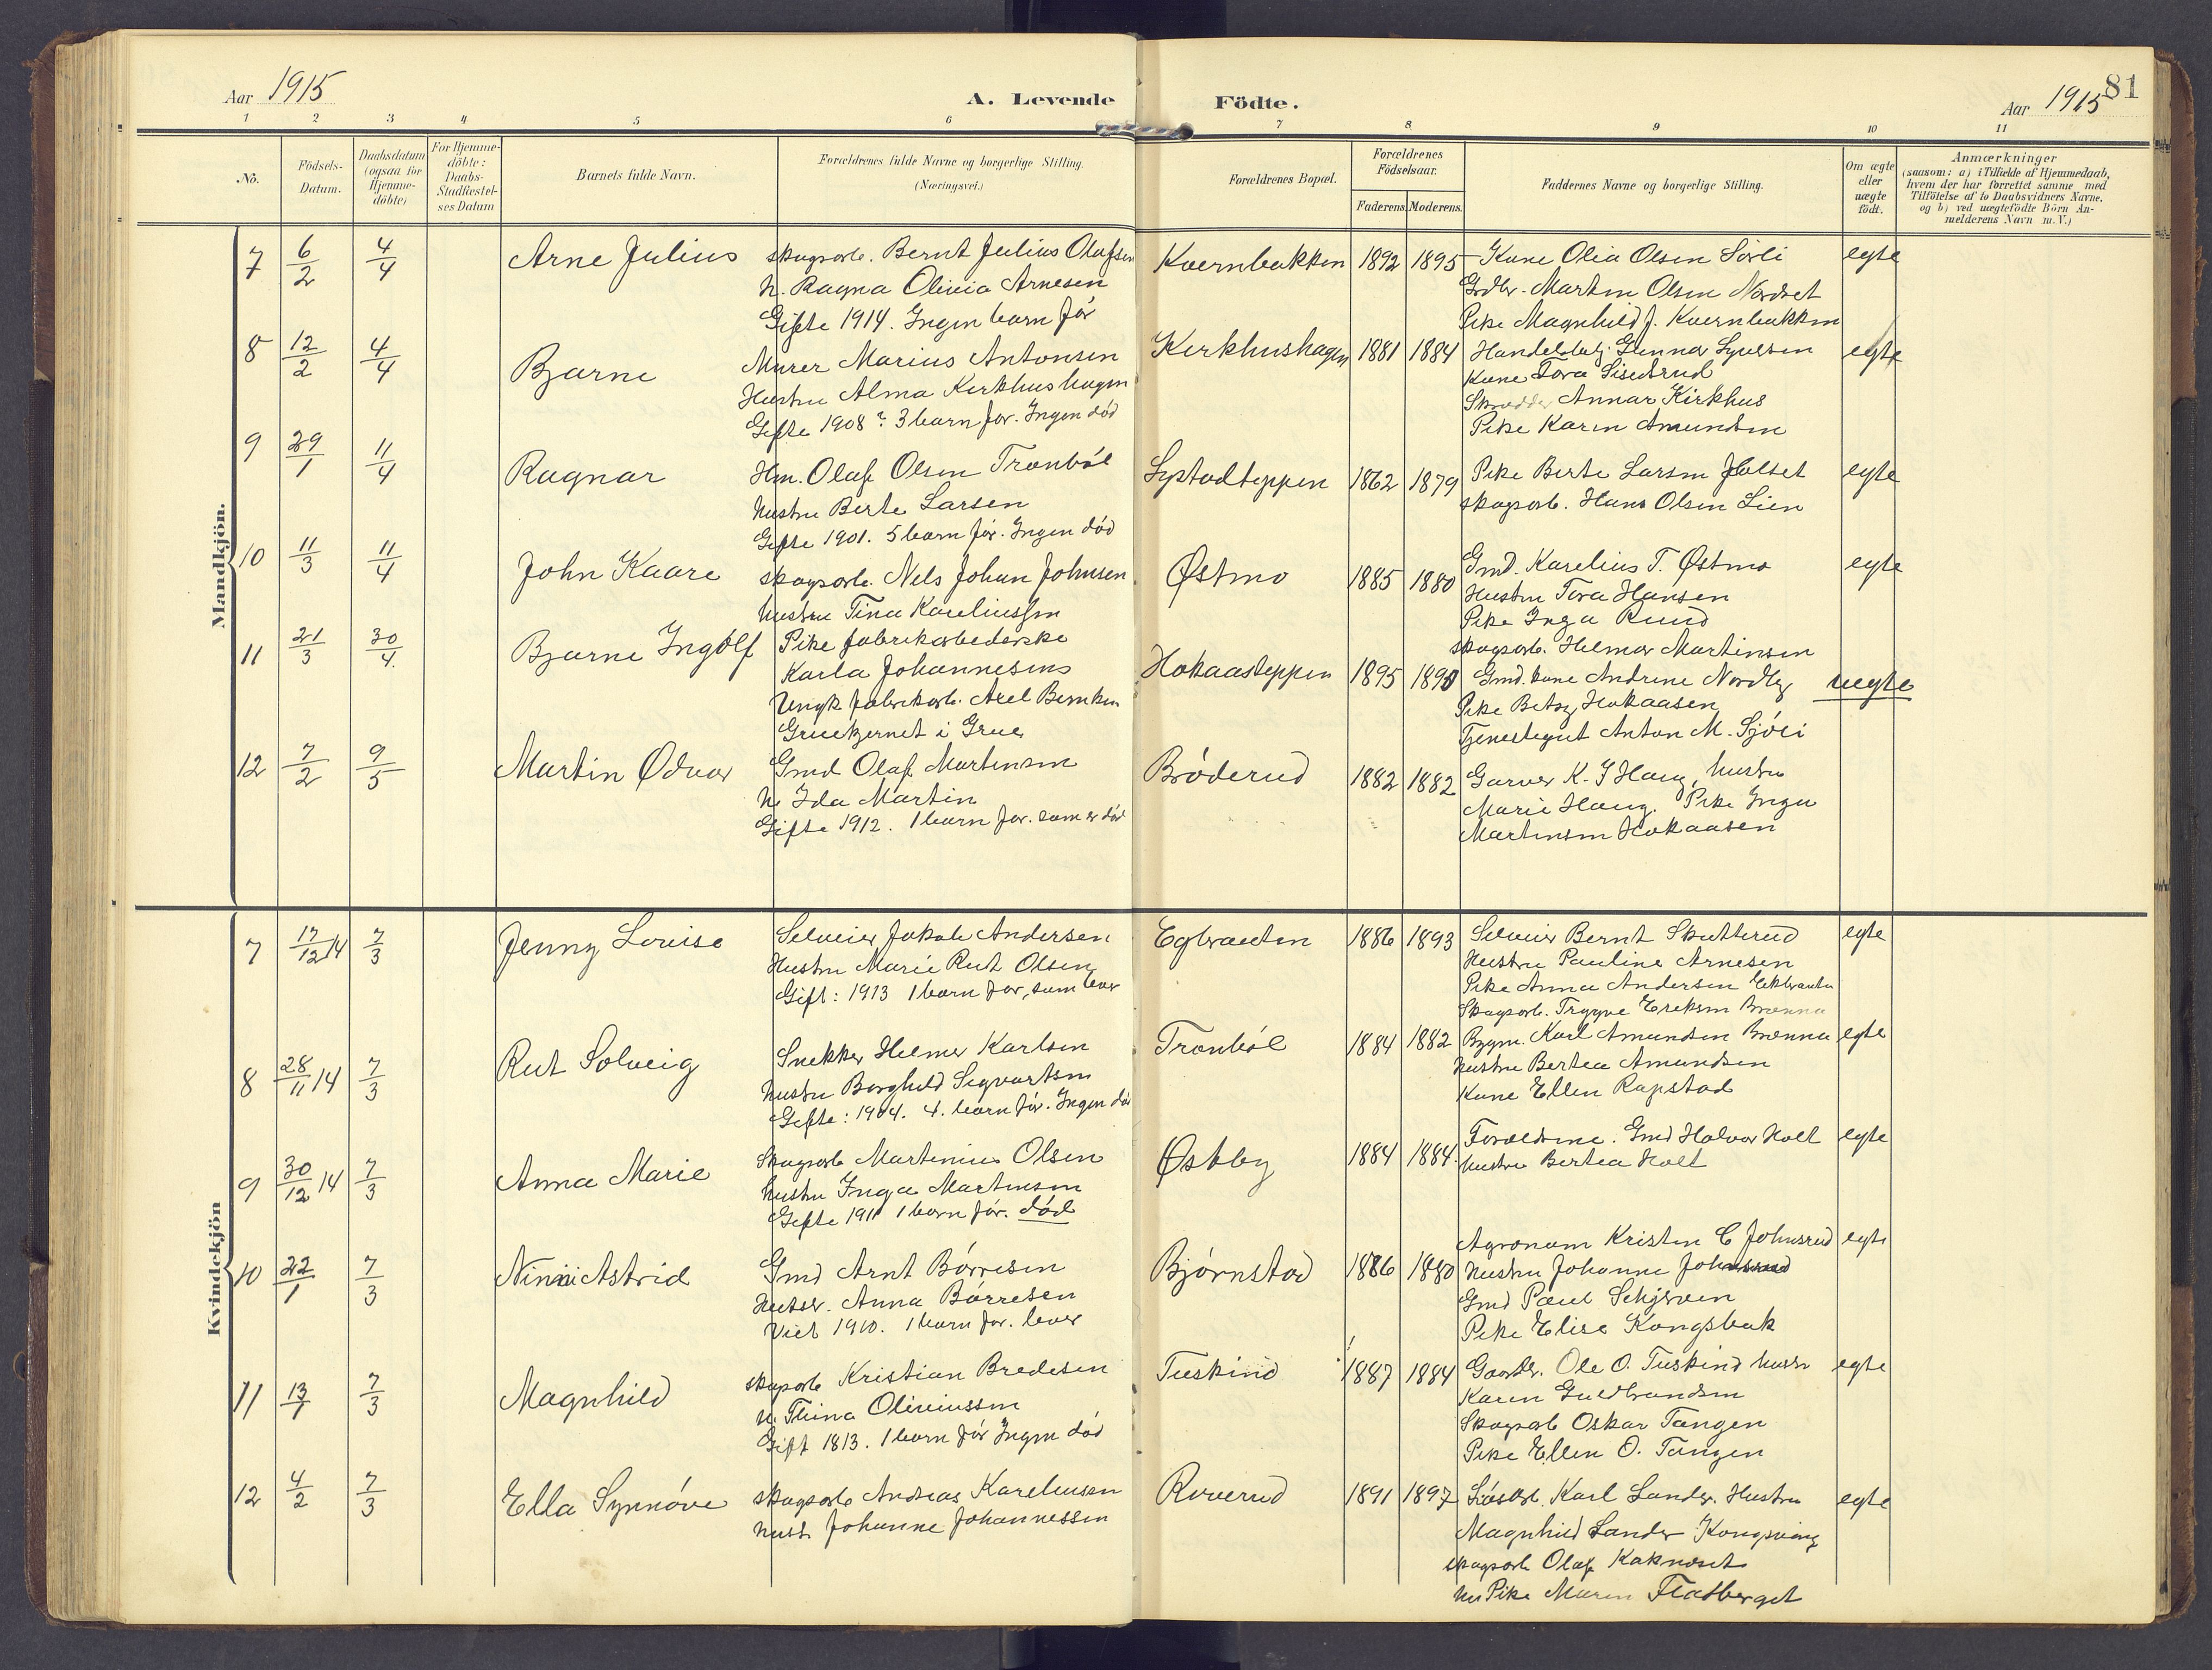 Aar 1915
A. Levende Födte.
Aar 1915
81
1 2 3 4 5 6 7 8 9 10 11
No.
Födsels-Datum.
Daabsdatum (ogsaa for Hjemme-döbte)
For Hjemme-döbte: Daabs-Stadfæstel-ses Datum
Barnets fulde Navn.
Forældrenes fulde Navne og borgerlige Stilling. (Næringsvei.)
Forældrenes Bopæl.
Forældrenes Födselsaar.
Faderens. Moderens.
Faddernes Navne og borgerlige Stilling.
Om ægte eller uægte födt.
Anmærkninger
(saasom: a) i Tilfælde af Hjemmedaab, hvem der har forrettet samme med Tilföielse af to Daabsvidners Navne, og b) ved uægtefödte Börn An-melderens Navn m. V.)
Mandkjön.
7 6/2 4/4 Arne Julius skogsarb. Bernt Julius Olafsen Kvernbakken 1892 1895 Kone Olia Olsen Sörli egte
h. Ragna Olivia Arnesen Grdbr. Martin Olsen Nordset
Gifte 1914. Ingen barn för Pike Magnhild J. Kvernbakken
8 12/2 4/4 Bjarne Murer Marius Antonsen Kirkhushagen 1881 1884 Handelsbetj. Gunnar Syversen egte
Hustru Alma Kirkhushagen Kone Tora
Gifte 1908? 3 barn för. Ingen död Skrædder Annar Kirkhus
Pike Karen Amundsen
9 29/1 11/4 Ragnar Hm. Olaf Olsen Tronböl 1862 1879 Pike Berte Larsen egte
hustru Berte Larsen skogsarb. Hans Olsen Lien
Gifte 1901. 5 barn för. Ingen död
10 11/3 11/4 John Kaare skogsarb. Nels Johan Johnsen Østmo 1885 1880 Gmd. Karelius T. Østmo egte
hustru Tina Kareliussen Hustru Tora Hansen
Pike Inga Ruud
skogsarb. Helmar Martinsen
11 21/3 30/4. Bjarne Ingolf Pike fabrikarbederske Hokaasteppen 1895 1890 Gmd. kone Andrine Nordby uegte
Karla Johannesens Pike Betzy Hokaasen
Ungk. fabrikarb. Axel Tjenestegut Anton M. Sjöli
i Grue
12 7/2 9/5 Martin Ødvar Gmd Olaf Martinsen Bröderud 1882 1882 Garver K. J Haug, hustru
h. Ida Martin Marie Haug. Pike Inga
Gifte 1912. 1 barn för. som er död Martinsen Hokaasen
Kvindekjön
7 17/12 14 7/3 Jenny Lovise Selveier Jakob Andersen Egbrauten 1886 1893 Selveier Bernt Skutterud egte
Hustru Marie Rut Olsen Hustru Pauline Arnesen
Gift: 1913 1 barn för, som lever Pike Anna Andersen Ekbrauten
Skogsarb. Trygve Eriksen Brænna
8 28/11 14 7/3 Rut Solveig Snekker Helmer Karlsen Tronböl 1884 1882 Bygm. Karl Amundsen Brænna egte
hustru Borghild Sigvartsen hustru Bertea Amundsen
Gifte: 1904. 4. barn för. Ingen död Kone Ellen Rapstad
9 30/12 14 7/3 Anna Marie Skogsarb Martinius Olsen Østby 1884 1884. Forældrene. Gmd Halvor Holt egte
hustru Inga Martinsen hustru Bertea Holt
Gifte 1911 1 barn för. död
10 22/1 7/3 Astrid Gmd Arnt Börresen Bjørnstad 1886 1880 Agronom Kristen C Johnsrud egte
Hustr. Anna Börresen hustru Johanne Johnsrud
Viet 1910. 1 barn för. lever Gmd Paul Schjerven
Pike Elise Kongsbak
11 13/1 7/3 Magnhild skogsarb Kristian Bredesen Tuskind 1887 1884 Gaardbr. Ole O. Tuskind hustr egte
h. Thina Oliviussen Karen Guldbrandsen
Gift 1813. 1 barn för Ingen död Skogsarb Oskar Tangen
Pike Ellen O. Tangen
12 4/2 7/3 Ella Synnöve skogsarb Andreas Kareliusen Roverud 1891 1897 Karl Sander. Hustru egte
hust. Johanne Johannessen Magnhild Sander Kongsving
skogsarb Olaf Kaknæset
Pike Maren Flatberget